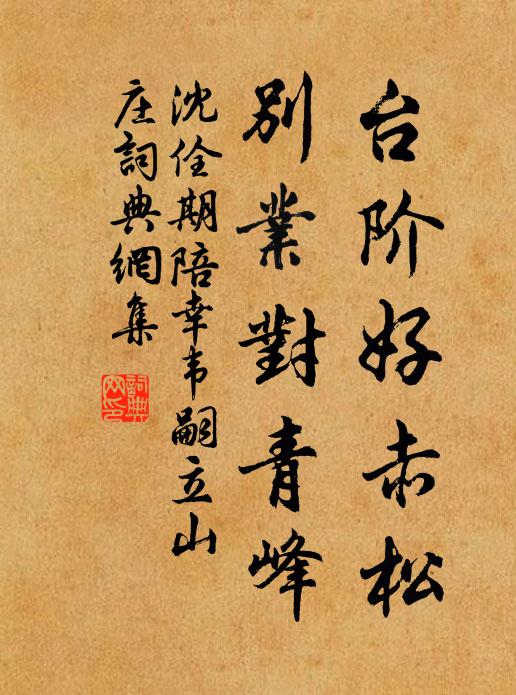 台阶好赤松
別業對青峰
沈佺期陪幸韦嗣立山
庄詞典網集
詞典
网印